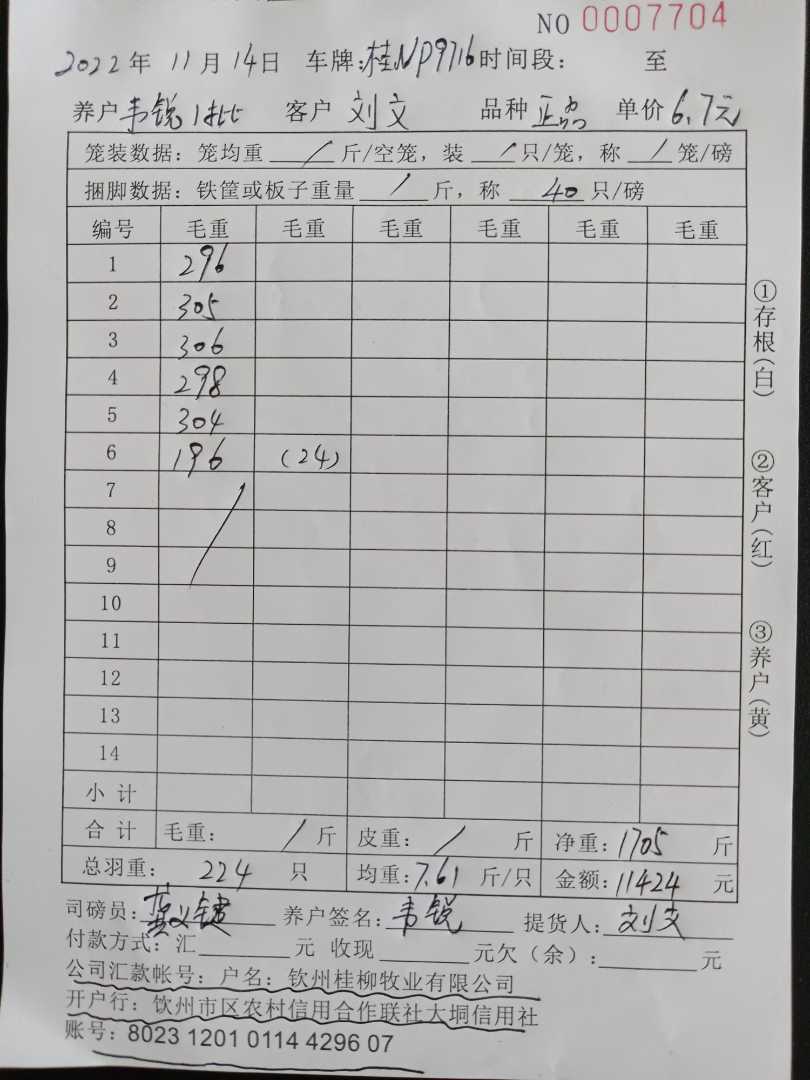 NO 0007704
2022年 11月 14日 车牌:桂NP9716 时间段: 至
养户 韦锐1批 客户 刘文 品种 正品 单价 6.7元
笼装数据: 笼均重 / 斤/空笼, 装 / 只/笼, 称 / 笼/磅
捆脚数据: 铁筐或板子重量 / 斤, 称 40 只/磅
编号 毛重 毛重 毛重 毛重 毛重 毛重
1 296
2 305
3 306
4 298
5 304
6 196 (24)
7
8
9
10
11
12
13
14
小计
合计 毛重: / 斤 皮重: / 斤 净重: 1705 斤
总羽重: 224 只 均重: 7.61 斤/只 金额: 11424 元
司磅员: 龚义键 养户签名: 韦锐 提货人: 刘文
付款方式: 汇 元 收现 元欠(余): 元
公司汇款帐号: 户名: 钦州桂柳牧业有限公司
开户行: 钦州市区农村信用合作联社大垌信用社
账号: 8023 1201 0114 4296 07
①存根(白)
②客户(红)
③养户(黄)